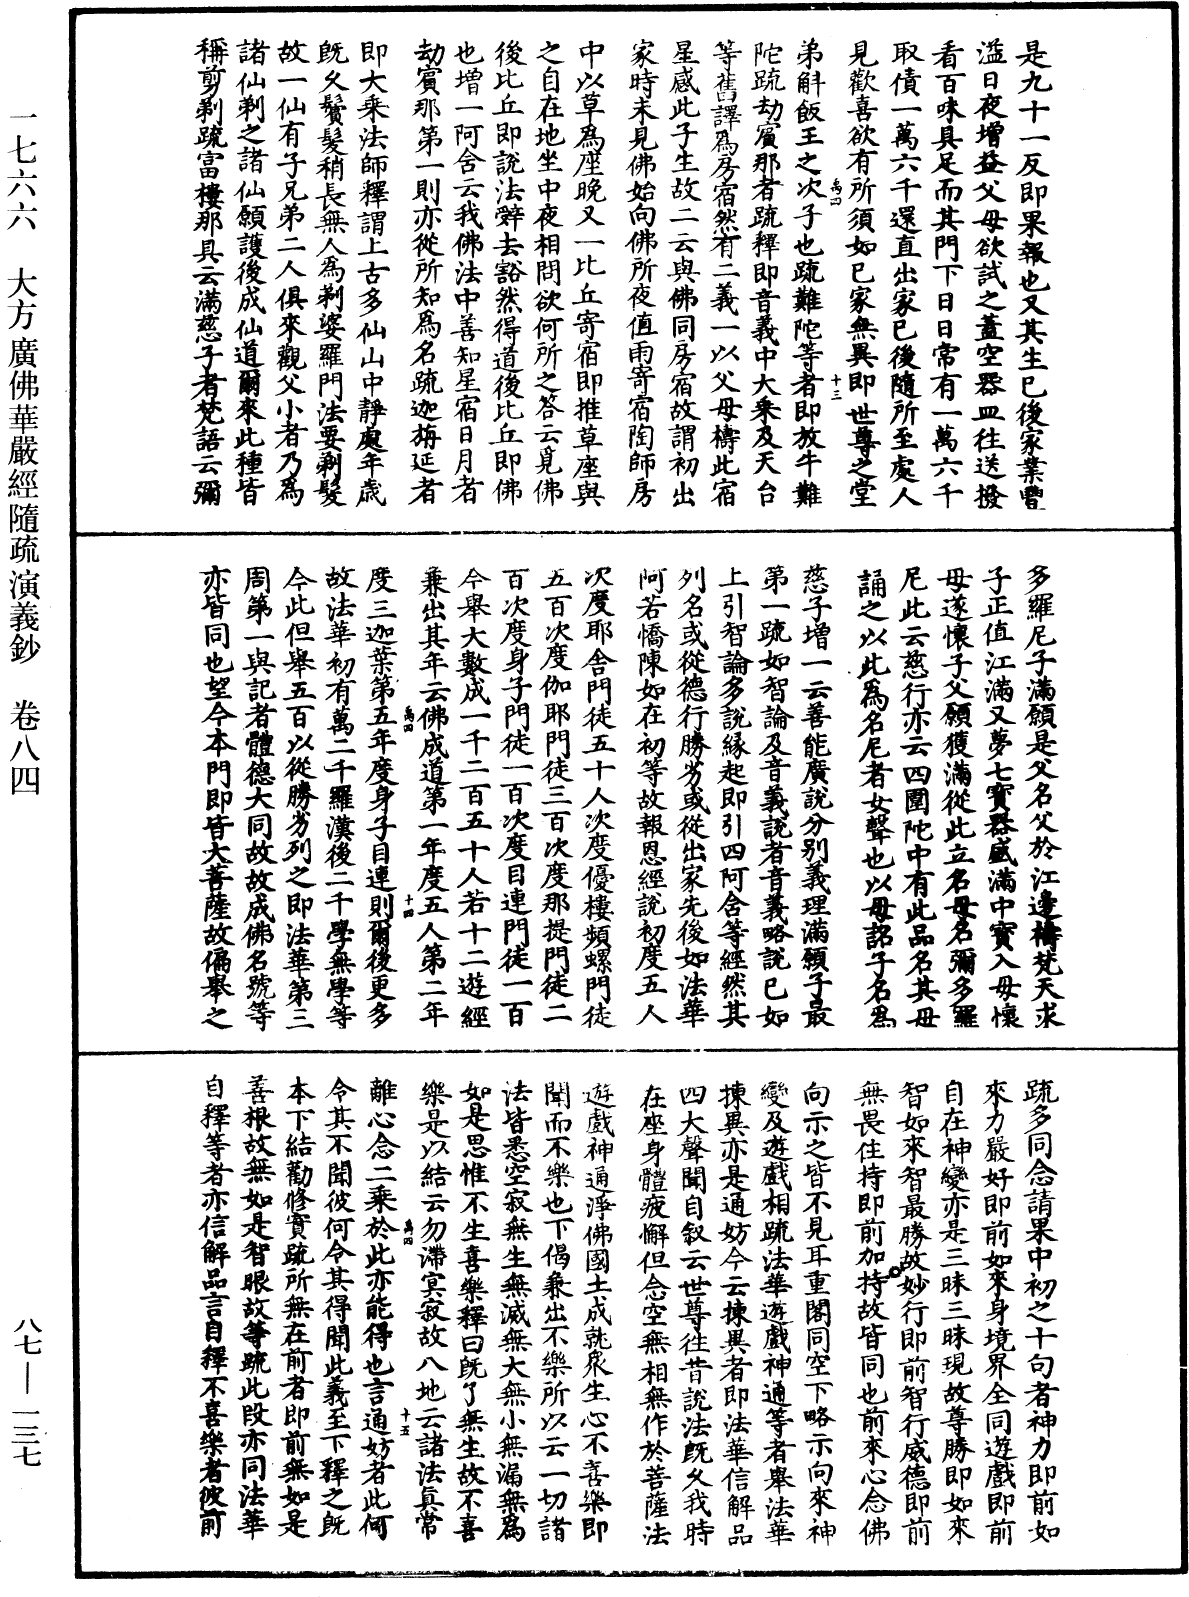 是九十一反即果報也又其生已後家業豐
溢日夜增益父母欲試之蓋空器皿往送撥
看百味具足而其門下日日常有一萬六千
取債一萬六千還直出家已後隨所至處人
見歡喜欲有所須如已家無異即世尊之堂
弟斛飯王之次子也疏難陀等者即放牛難
陀疏劫賓那者疏釋即音義中大乘及天台
等舊譯為房宿然有二義一以父母禱此宿
星感此子生故二云與佛同房宿故謂初出
家時未見佛始向佛所夜值雨寄宿陶師房
中以草為座晚又一比丘寄宿即推草座與
之自在地坐中夜相問欲何所之答云覓佛
後比丘即說法辭去豁然得道後比丘即佛
也增一阿含云我佛法中善知星宿日月者
劫賓那第一則亦從所知為名疏迦旃延者
即大乘法師釋謂上古多仙山中靜處年歲
既久鬚髮稍長無人為剃婆羅門法要剃髮
故一仙有子兄弟二人俱來觀父小者乃為
諸仙剃之諸仙願護後成仙道爾來此種皆
稱剪剃疏富樓那具云滿慈子者梵語云彌
多羅尼子滿願是父名父於江邊禱梵天求
子正值江滿又夢七寶器盛滿中寶入母懷
母遂懷子父願獲滿從此立名母名彌多羅
尼此云慈行亦云四圍陀中有此品名其母
誦之以此為名尼者女聲也以母詺子名為
慈子增一云善能廣說分別義理滿願子最
第一疏如智論及音義說者音義略說已如
上引智論多說緣起即引四阿含等經然其
列名或從德行勝劣或從出家先後如法華
阿若憍陳如在初等故報恩經說初度五人
次度耶舍門徒五十人次度優樓頻螺門徒
五百次度伽耶門徒三百次度那提門徒二
百次度身子門徒一百次度目連門徒一百
今舉大數成一千二百五十人若十二遊經
兼出其年云佛成道第一年度五人第二年
度三迦葉第五年度身子目連則爾後更多
故法華初有萬二千羅漢後二千學無學等
今此但舉五百以從勝劣列之即法華第三
周第一與記者體德大同故故成佛名號等
亦皆同也望今本門即皆大菩薩故偏舉之
疏多同念請果中初之十句者神力即前如
來力嚴好即前如來身境界全同遊戲即前
自在神變亦是三昧三昧現故尊勝即如來
智如來智最勝故妙行即前智行威德即前
無畏住持即前加持故皆同也前來心念佛
向示之皆不見耳重閣同空下略示向來神
變及遊戲相疏法華遊戲神通等者舉法華
揀異亦是通妨今云揀異者即法華信解品
四大聲聞自叙云世尊往昔說法既久我時
在座身體疲懈但念空無相無作於菩薩法
遊戲神通淨佛國土成就眾生心不喜樂即
聞而不樂也下偈兼出不樂所以云一切諸
法皆悉空寂無生無滅無大無小無漏無為
如是思惟不生喜樂釋曰既了無生故不喜
樂是以結云勿滯冥寂故八地云諸法真常
離心念二乘於此亦能得也言通妨者此何
令其不聞彼何令其得聞此義至下釋之既
本下結勸修實疏所無在前者即前無如是
善根故無如是智眼故等疏此段亦同法華
自釋等者亦信解品言自釋不喜樂者彼前
禹四
十三
禹四
十四
禹四
十五
一七六六 大方廣佛華嚴經隨疏演義鈔 卷八四
八七—一三七